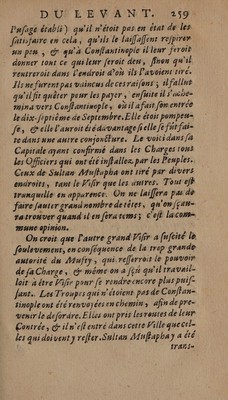 DU LEVANT. 259
l'usage établi) qu'il n'étoit pas en état de les
satisfaire en cela, qu'ils le laissassent respirer
un peu, & qu'à Constantinople il leur feroit
donner tout ce qui leur seroit deu, sinon qu'il
rentreroit dans l'endroit d'où ils l'avoient tiré.
Ils ne furent pas vaincus de ces raisons; il fallut
qu'il fit quêter pour les payer, ensuite il s'ache-
mina vers Constantinople, où il a fait son entrée
le dix-septiéme de Septembre. Elle étoit pompeu-
se, & elle l'auroit été davantage si elle se fût fai-
te dans une autre conjoncture. Le voici dans sa
Capitale ayant confirmé dans les Charges tous
les Officiers qui ont été installez par les Peuples.
Ceux de Sultan Mustapha ont tiré par divers
endroits, tant le Visir que les autres. Tout est
tranquille en apparence. On ne laissera pas de
faire sauter grand nombre de têtes, qu'on sçau-
ra trouver quand il en sera tems; c'est la com-
mune opinion.
On croit que l'autre grand Visir a suscité le
soulevement, en conséquence de la trop grande
autorité du Mufty, qui resserroit le pouvoir
de sa Charge, & même on a sçû qu'il travail-
loit à être Visir pour se rendre encore plus puis-
sant. Les Troupes qui n'étoient pas de Constan-
tinople ont été renvoyées en chemin, afin de pre-
venir le desordre. Elles ont pris les routes de leur
Contrée, & il n'est entré dans cette Ville que cel-
les qui doivent y rester. Sultan Mustapha y a été
trans-